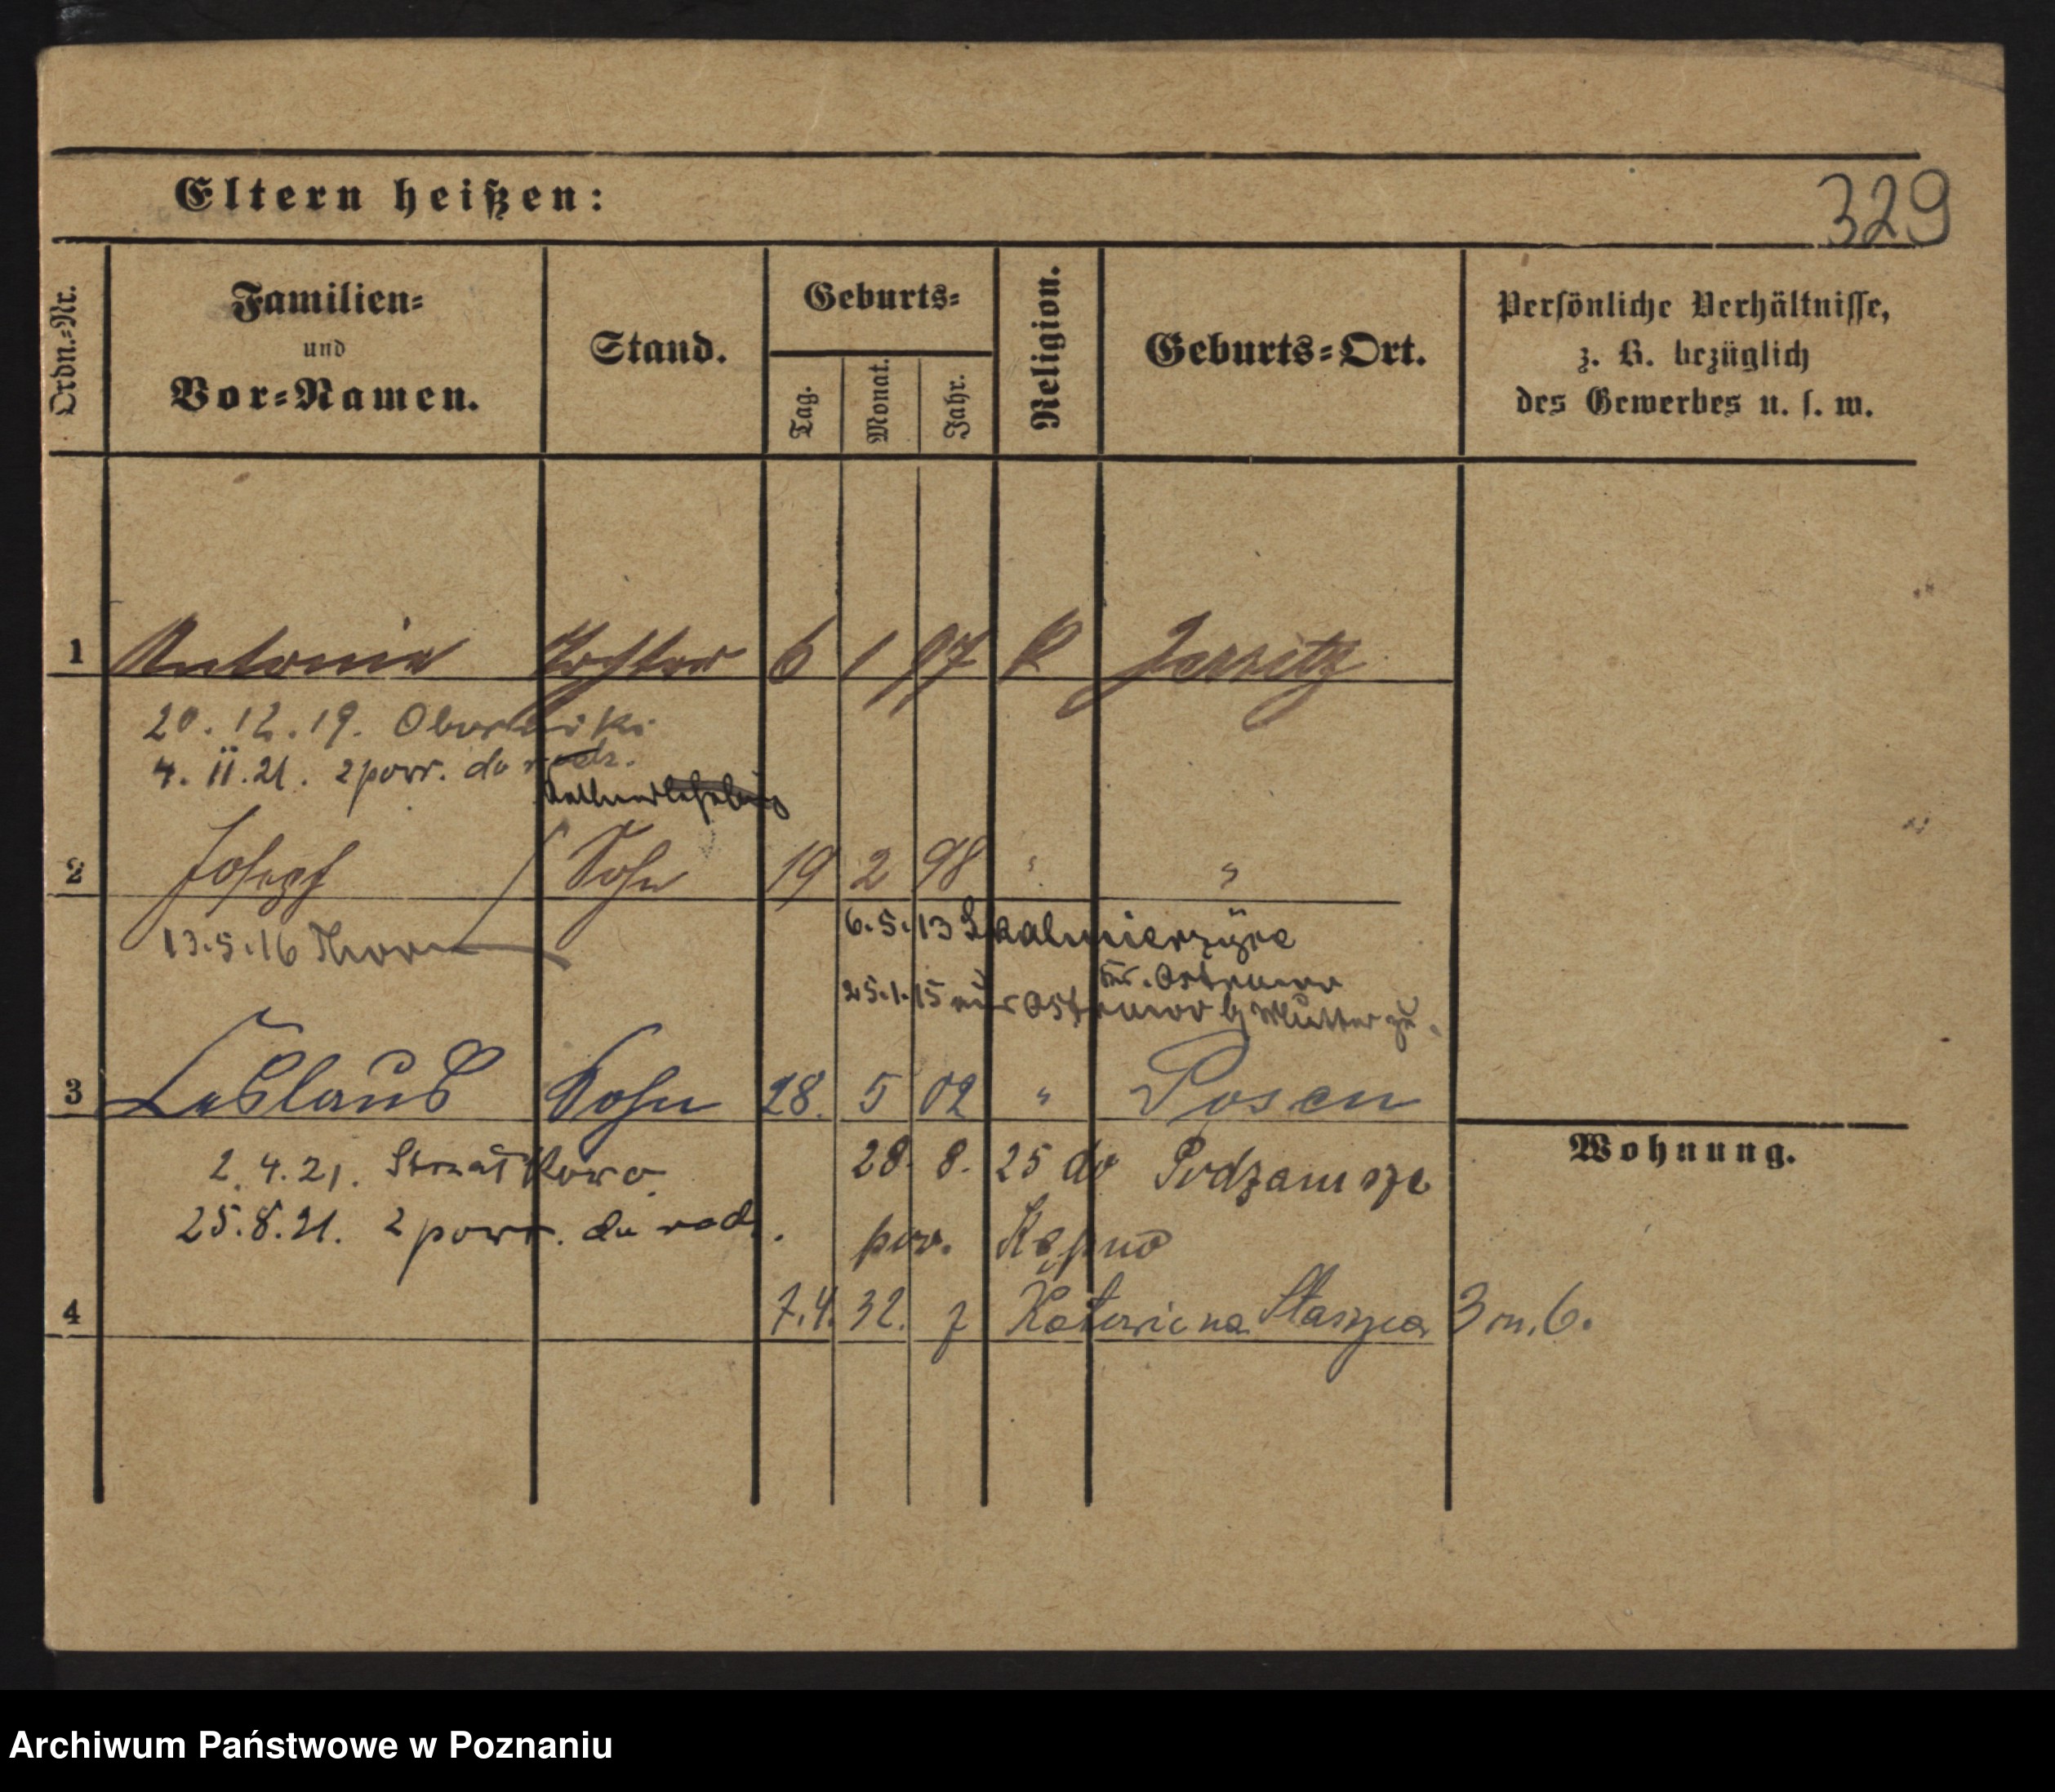 329
Eltern heißen:
Ordn.-Nr.
Familien-
und
Vor-Namen.
Stand.
Geburts-
Tag.
Monat.
Jahr.
Religion.
Geburts-Ort.
Persönliche Verhältnisse,
z. B. bezüglich
des Gewerbes u. s. w.
1 Antonie Tochter 6 1 97 K Jersitz
20. 12. 19. Oborniki
4. II. 21. z pow. do rodz.
2 Joseph Sohn 19 2 98 " "
13.5.16 Thorn
6.5.13 Skalmierzyce
Kr. Ostrowo
25.1.15 Ostrowo Mutter
3 Ceslaus Sohn 28. 5 02 " Posen
2. 4. 21. Strzałkowo
25. 8. 21. z powr. do rodz.
28. 8. 25 do Podzamcze
pow. Kępno
4 7. 4. 32. z Katowic na Staszyca 3 m. 6.
Wohnung.
Archiwum Państwowe w Poznaniu